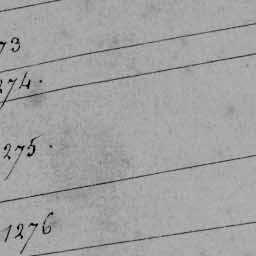 73
274.
275.
1276